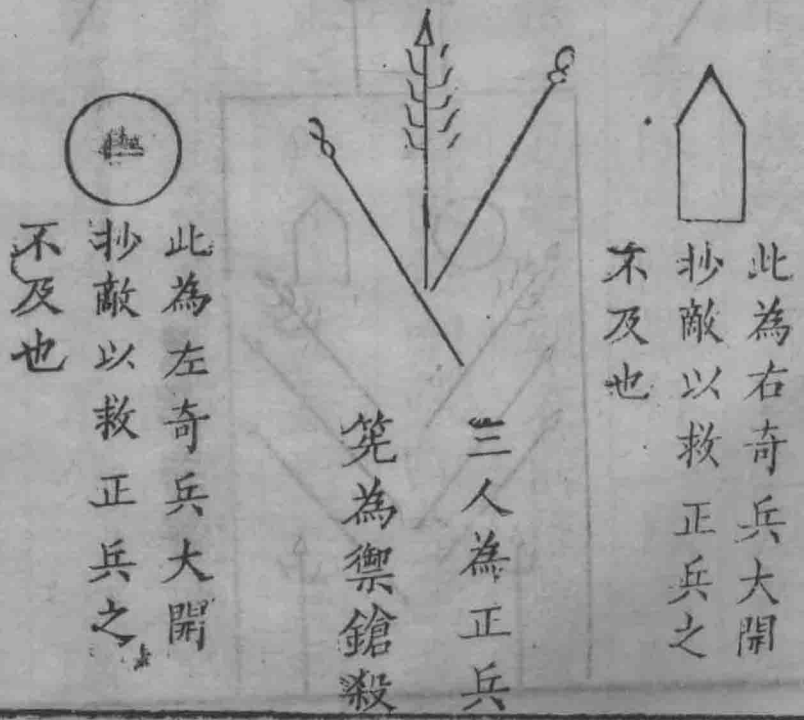 此為右奇兵大開
抄敵以救正兵之
不及也
三人為正兵
筅為禦鎗殺
此為左奇兵大開
抄敵以救正兵之
不及也